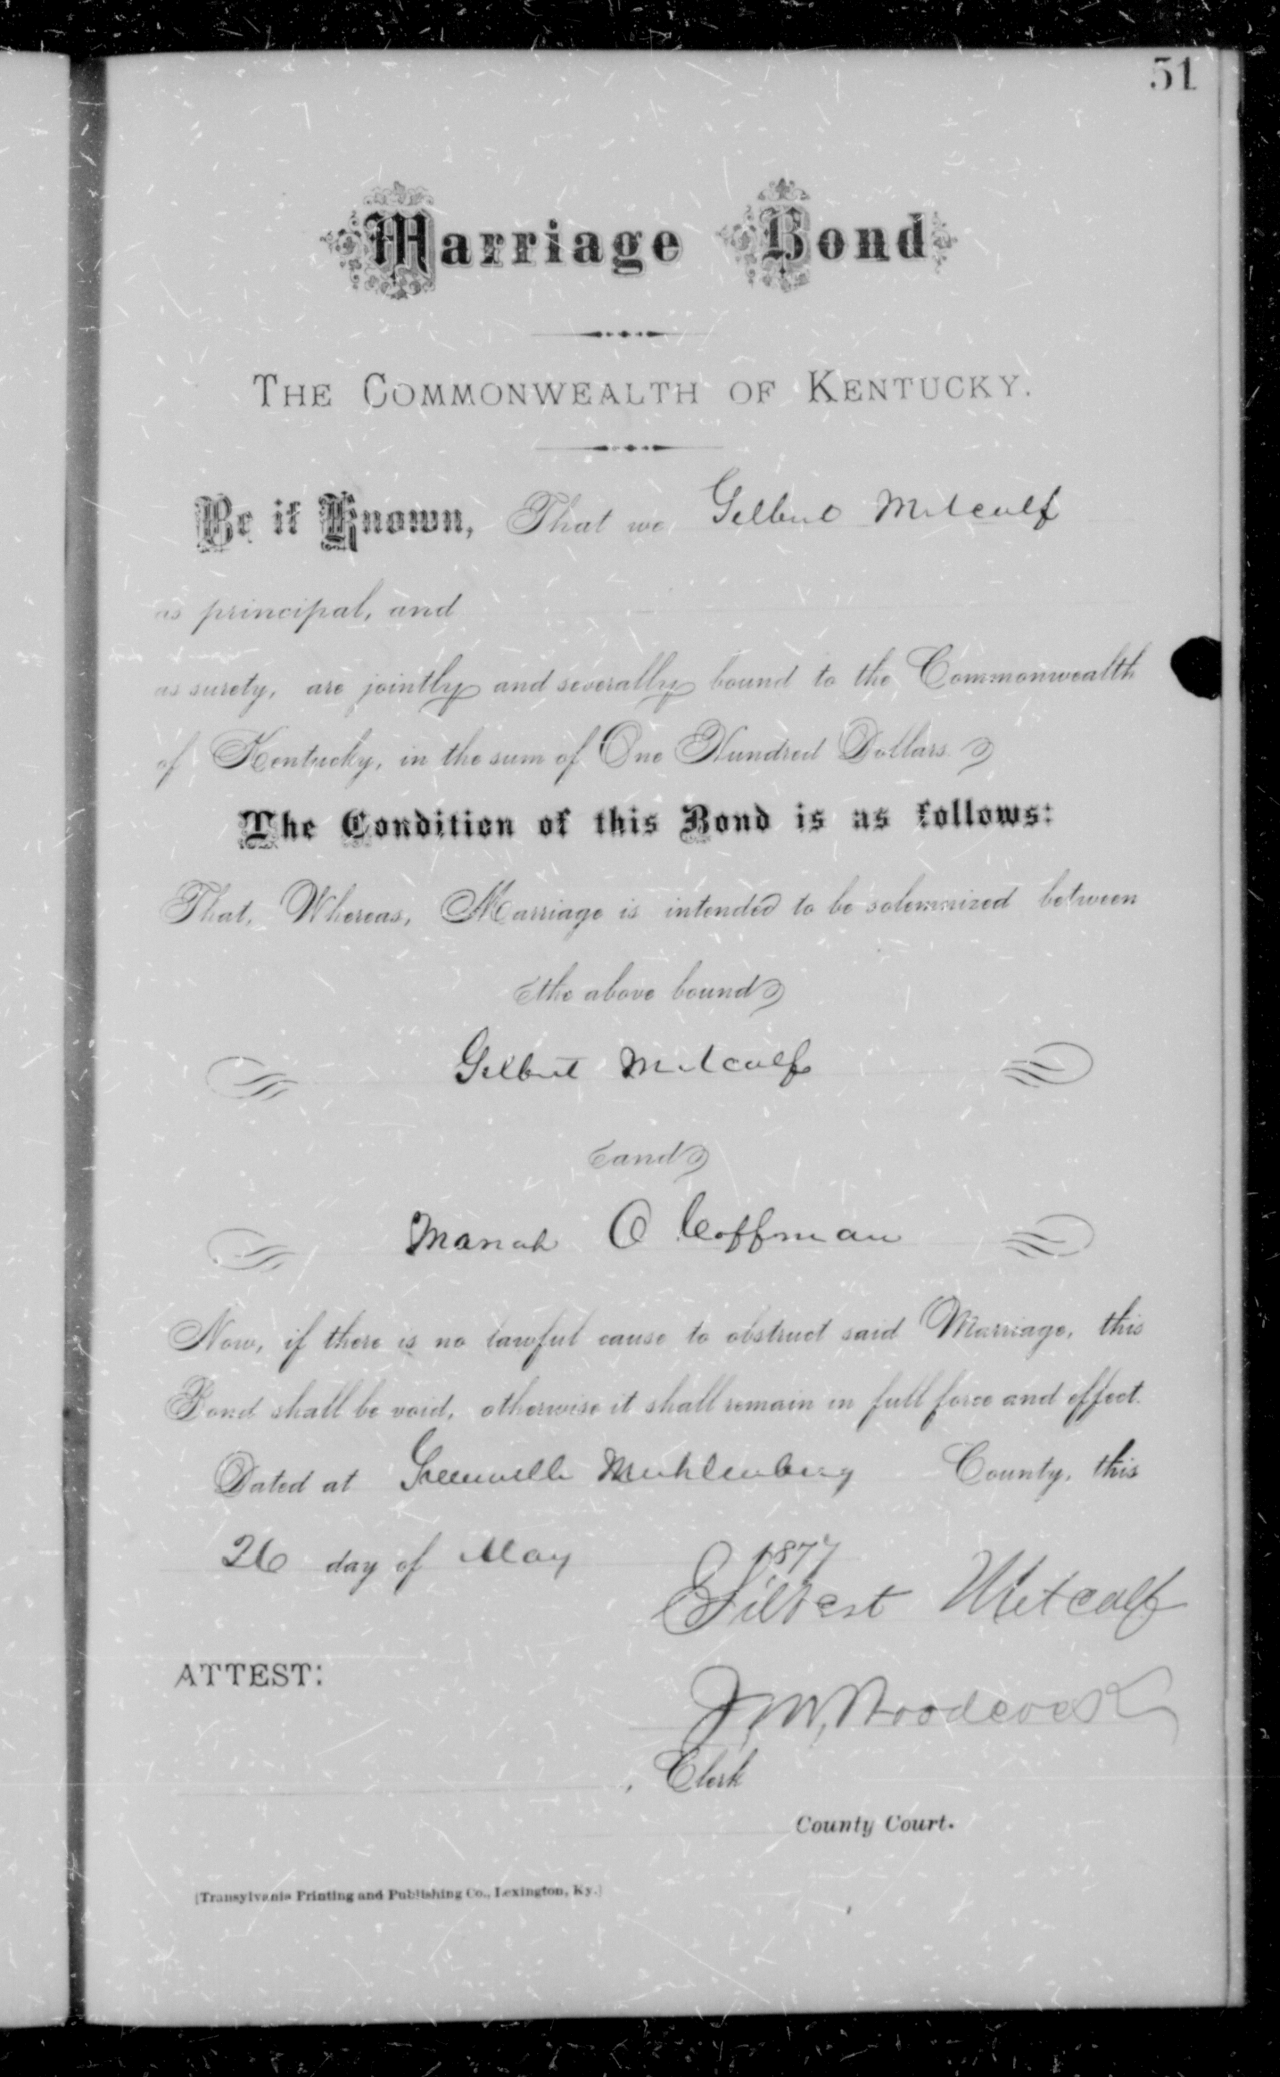 51
Marriage Bond
THE COMMONWEALTH OF KENTUCKY.
Be it Known, That we Gilbert Metcalf
as principal, and
as surety, are jointly and severally bound to the Commonwealth
of Kentucky, in the sum of One Hundred Dollars.
The Condition of this Bond is as follows:
That, Whereas, Marriage is intended to be solemnized between
the above bound
Gilbert Metcalf
and
O Coffman
Now, if there is no lawful cause to obstruct said Marriage, this
Bond shall be void, otherwise it shall remain in full force and effect.
Dated at Greenville Muhlenberg County, this
26 day of May 1877
Gilbert Metcalf
ATTEST:
J. M. Woodcock
, Clerk
County Court.
[Transylvania Printing and Publishing Co., Lexington, Ky.]